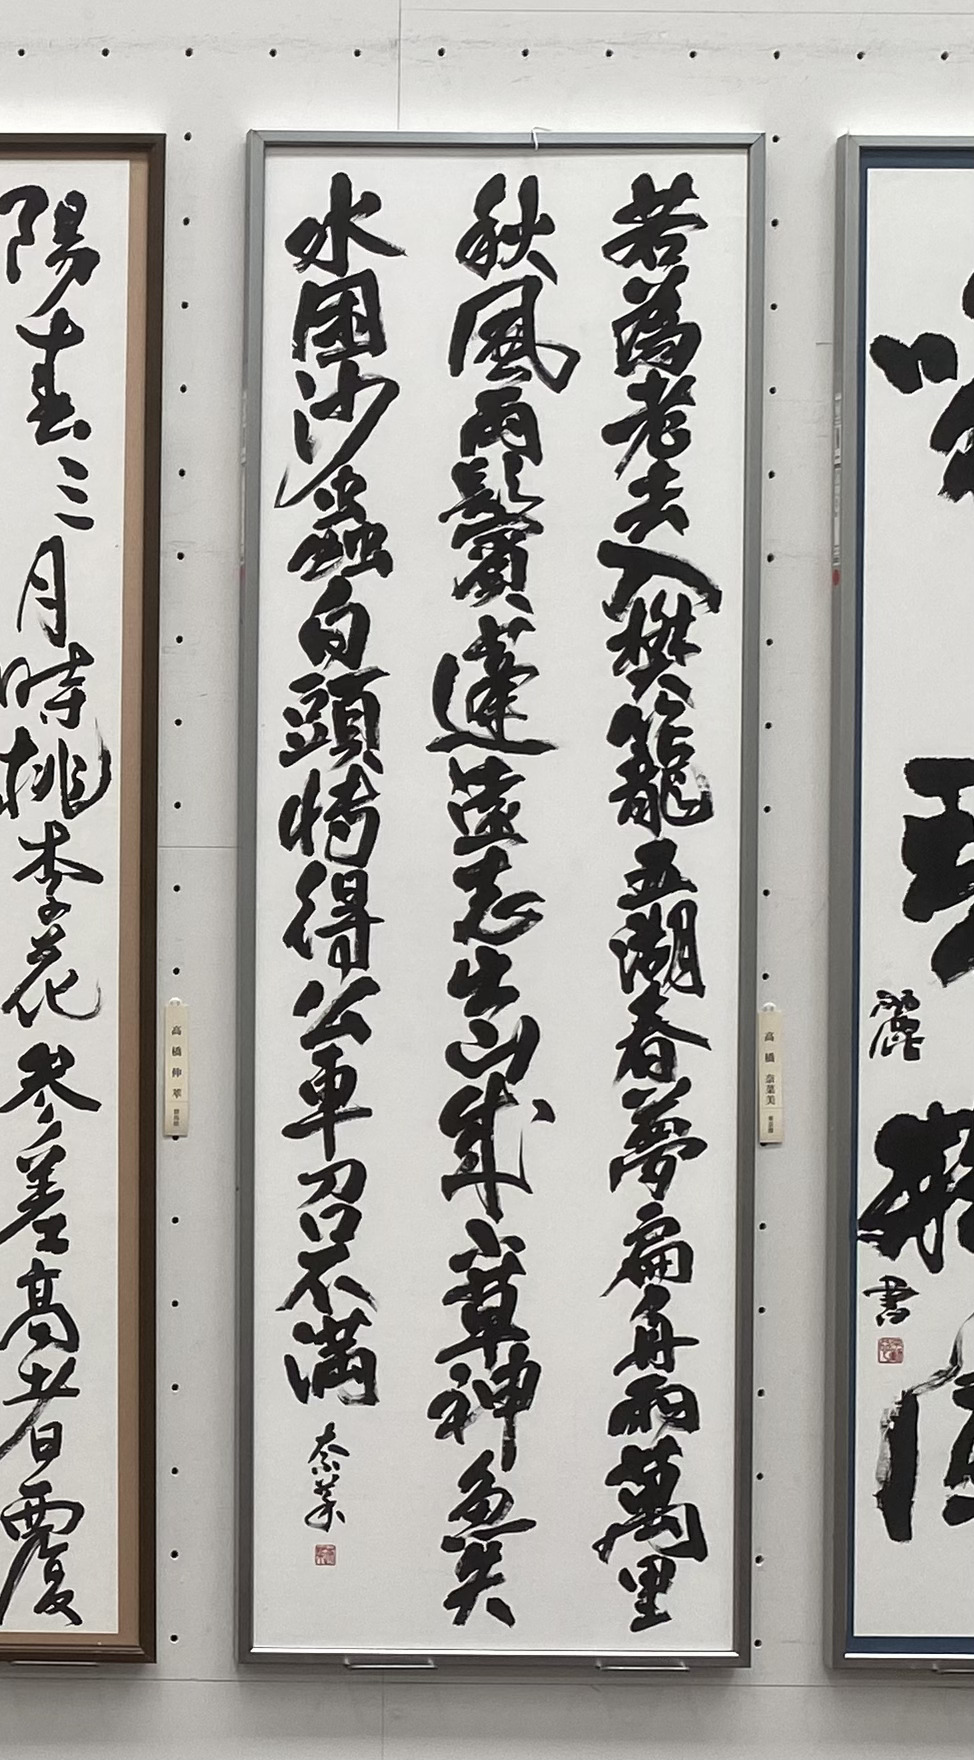 若為老去入樊籠五湖春夢扁舟雨萬里
秋風兩鬢蓬遠志出山成小草神魚失
水困沙蟲白頭博得公車召不滿
奈菜
高橋 奈菜美
麗
書
陽春三月時桃李花参差高者覆
高橋 伸翠